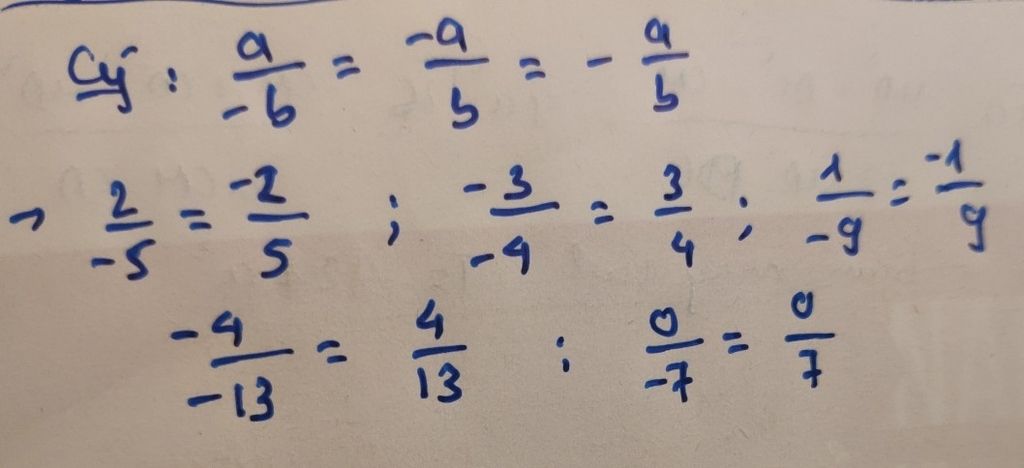 Cý: a/-b = -a/b = - a/b
→ 2/-5 = -2/5 ; -3/-4 = 3/4 ; 1/-9 = -1/9
-4/-13 = 4/13 ; 0/-7 = 0/7